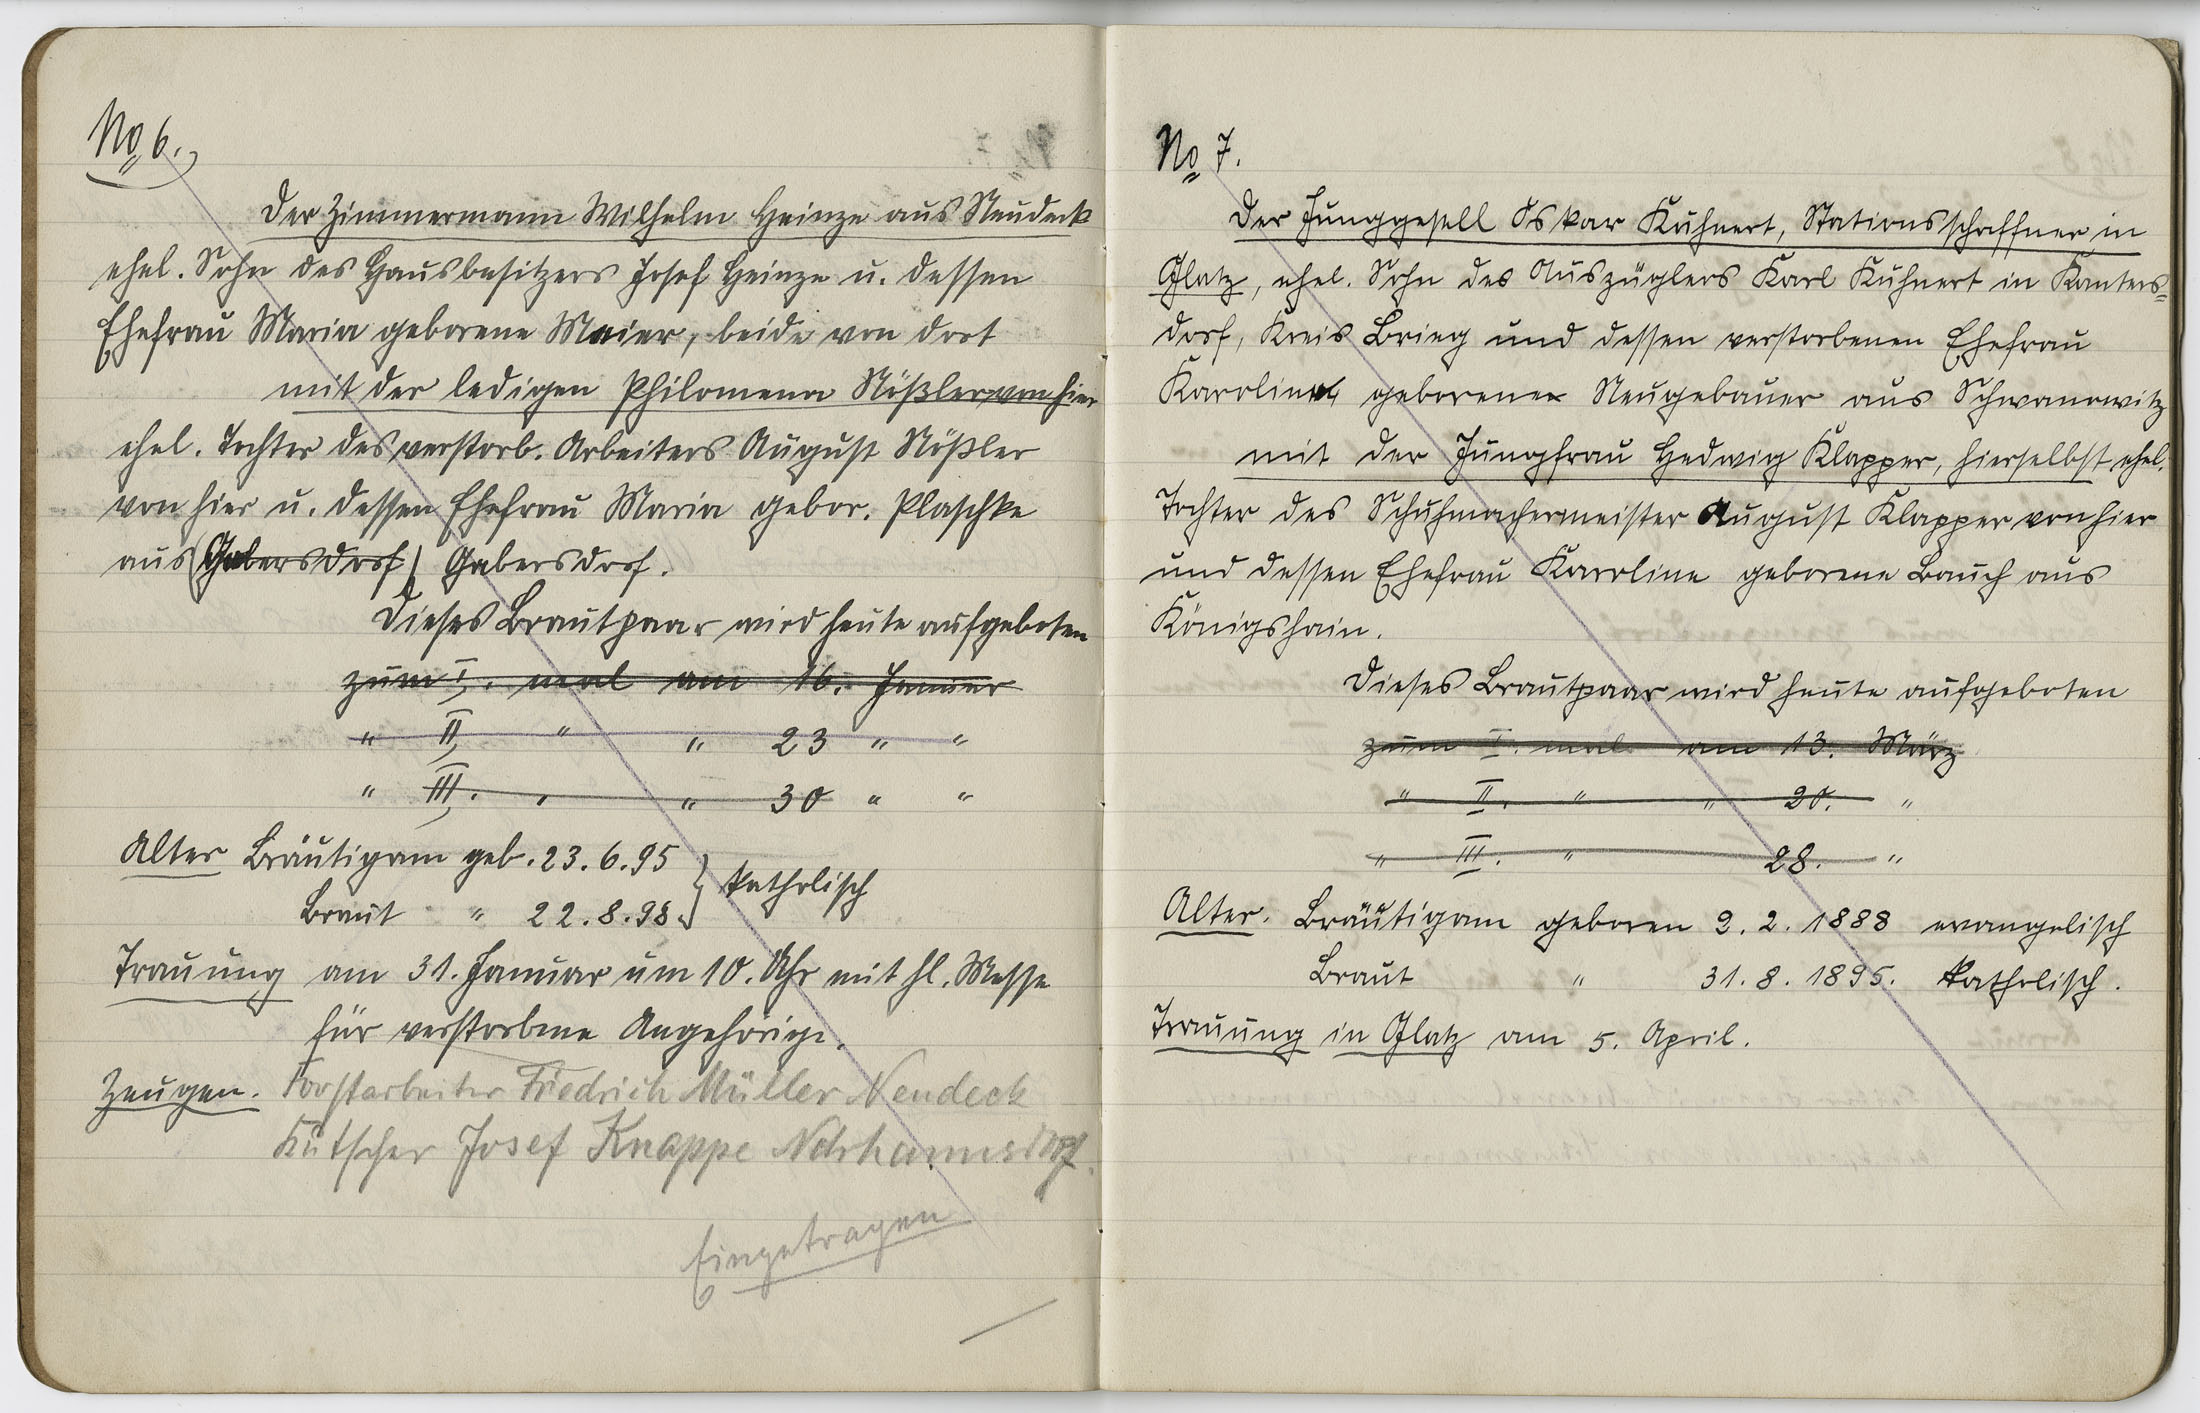 No 6.
Der Zimmermann Wilhelm Heinze aus Neudeck
ehel. Sohn des Hausbesitzers Josef Heinze u. dessen
Ehefrau Maria geborene Maier, beide von dort
mit der ledigen Philomena Nößler von hier
ehel. Tochter des verstorb. Arbeiters August Nößler
von hier u. dessen Ehefrau Maria gebor. Plaschke
aus (Gabersdorf) Gabersdorf.
Dieses Brautpaar wird heute aufgeboten
zum I. mal am 16. Januar
" II. " " 23 " "
" III. " " 30 " "
Alter Bräutigam geb. 23.6.95
Braut " 22.8.98. } katholisch
Trauung am 31. Januar um 10. Uhr mit hl. Messe
für verstorbene Angehörige.
Zeugen. Forstarbeiter Friedrich Müller Neudeck
Kutscher Josef Knappe
Eingetragen
No 7.
Der Junggesell Oskar Kuhnert, Stationsschaffner in
Glatz, ehel. Sohn des Auszüglers Karl Kuhnert in Kanters=
dorf, Kreis Brieg und dessen verstorbenen Ehefrau
Karoline geborenen Neugebauer aus Schwanowitz
mit der Jungfrau Hedwig Klapper, hierselbst ehel.
Tochter des Schuhmachermeister August Klapper von hier
und dessen Ehefrau Karoline geborene Bauch aus
Königshain.
Dieses Brautpaar wird heute aufgeboten
zum I. mal am 13. März
" II. " " 20. "
" III. " 28. "
Alter. Bräutigam geboren 2. 2. 1888 evangelisch
Braut " 31. 8. 1895. katholisch.
Trauung in Glatz am 5. April.